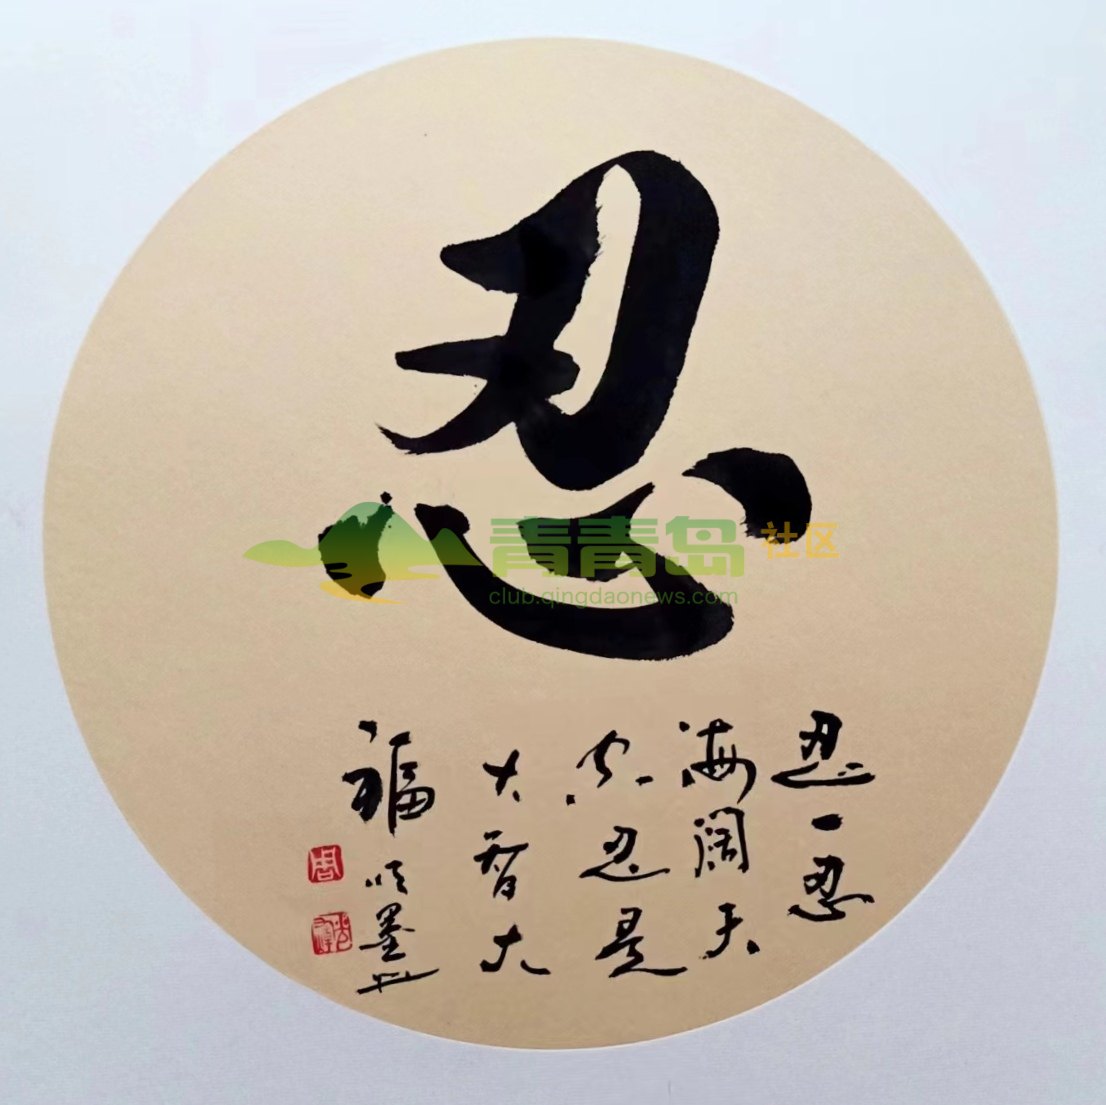 忍
忍一忍
海阔天
空忍是
大智大
福
墨
青青岛社区
club.qingdaonews.com